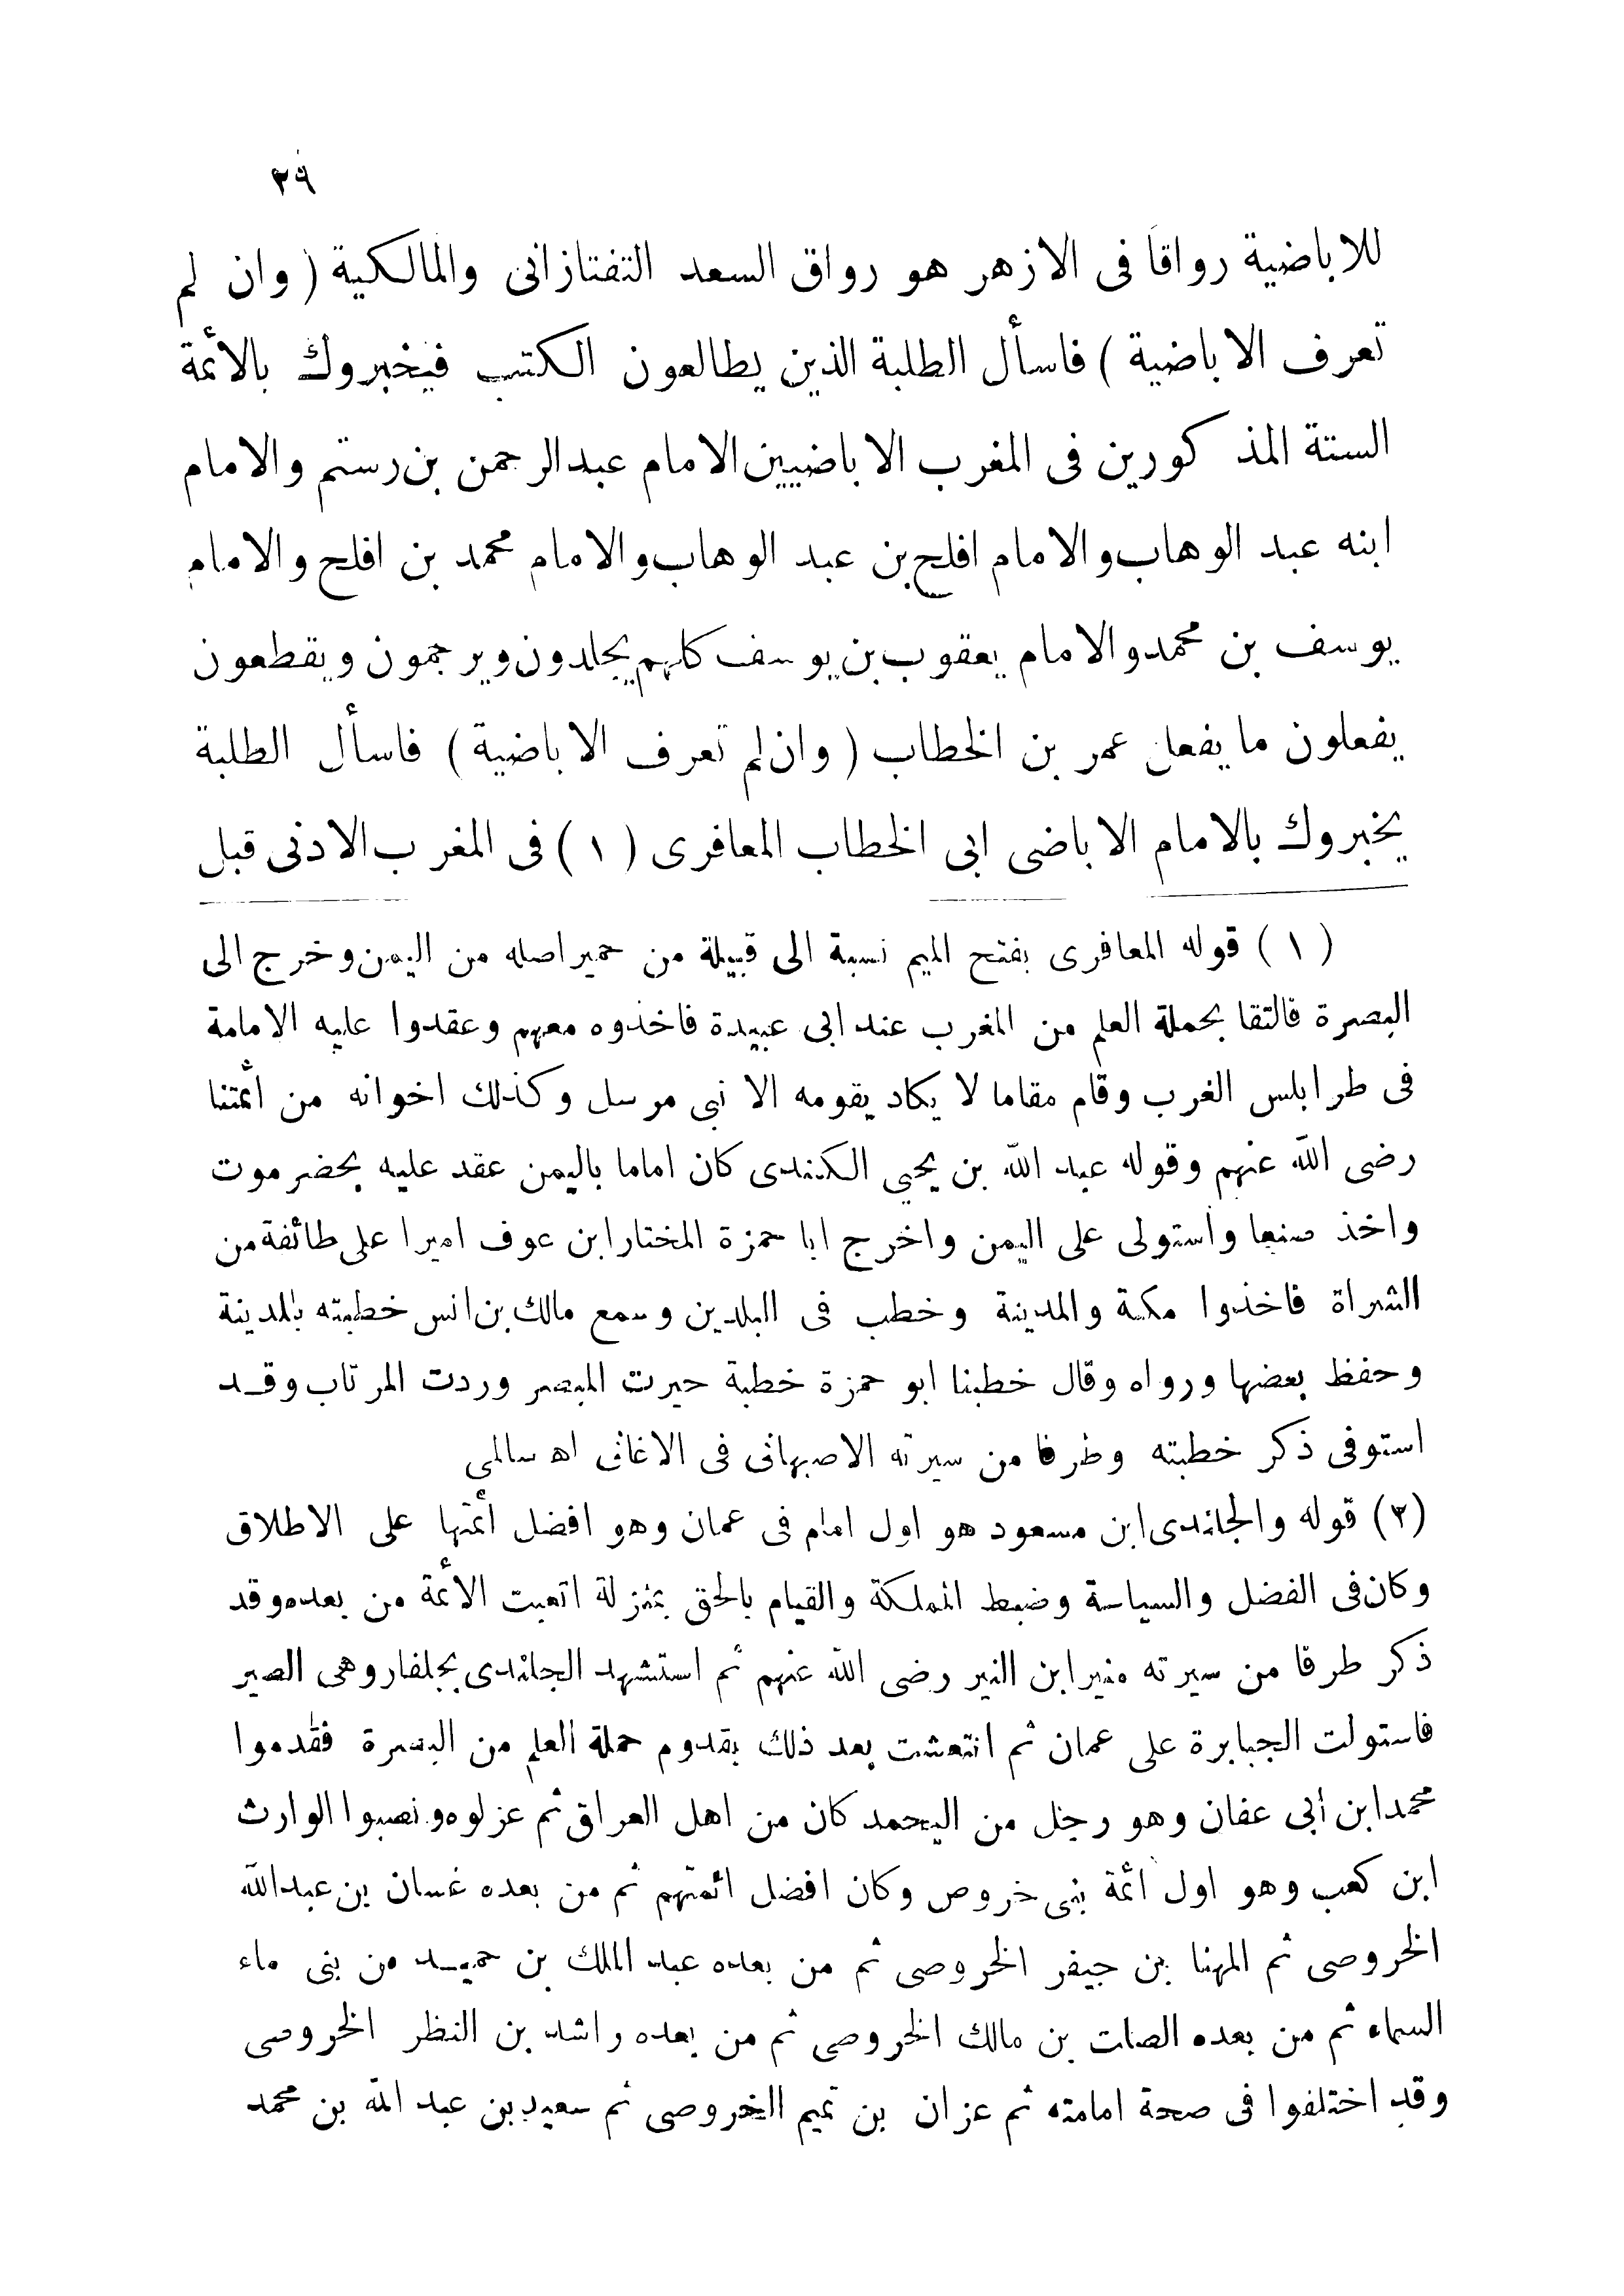 ٣٩
للاباضية رواقا فى الازهر هو رواق السعد التفتازانى والمالكية ( وان لم
تعرف الاباضية ) فاسأل الطلبة الذين يطالعون الكتب فيخبروك بالأئمة
الستة المذ كورين فى المغرب الاباضيين الامام عبدالرحمن بن رستم والامام
ابنه عبد الوهاب والامام افلح بن عبد الوهاب والامام محمد بن افلح والامام
يوسف بن محمد والامام يعقوب بن يوسف كلهم يجلدون ويرجمون ويقطعون
يفعلون ما يفعل عمر بن الخطاب ( وان لم تعرف الاباضية ) فاسأل الطلبة
يخبروك بالامام الاباضى ابى الخطاب المعافرى ( ١ ) فى المغرب الادنى قبل
( ١ ) قوله المعافرى بفتح الميم نسبة الى قبيلة من حمير اصله من اليمن وخرج الى
البصرة فالتقا بحملة العلم من المغرب عند ابى عبيدة فاخذوه معهم وعقدوا عليه الامامة
فى طرابلس الغرب وقام مقاما لا يكاد يقومه الا نبى مرسل وكذلك اخوانه من أئمتنا
رضى الله عنهم وقوله عبد الله بن يحيى الكندى كان اماما باليمن عقد عليه بحضرموت
واخذ صنعا واستولى على اليمن واخرج ابا حمزة المختار ابن عوف اميرا على طائفة من
الشراة فاخذوا مكة والمدينة وخطب فى البلدين وسمع مالك بن انس خطبته بالمدينة
وحفظ بعضها ورواه وقال خطبنا ابو حمزة خطبة حيرت المبصر وردت المرتاب وقد
استوفى ذكر خطبته وطرفا من سيرته الاصبهانى فى الاغانى اه سالمى
(٢) قوله والجلندى ابن مسعود هو اول امام فى عمان وهو افضل أئمتها على الاطلاق
وكان فى الفضل والسياسة وضبط المملكة والقيام بالحق بمنزلة اتعبت الأئمة من بعده وقد
ذكر طرفا من سيرته منير ابن النير رضى الله عنهم ثم استشهد الجلندى بجلفار وهى الصير
فاستولت الجبابرة على عمان ثم انتعشت بعد ذلك بقدوم حملة العلم من البصرة فقدموا
محمد ابن أبى عفان وهو رجل من اليحمد كان من اهل العراق ثم عزلوه ونصبوا الوارث
ابن كعب وهو اول أئمة بنى خروص وكان افضل ائمتهم ثم من بعده غسان بن عبدالله
الخروصى ثم المهنا بن جيفر الخروصى ثم من بعده عبد الملك بن حميد من بنى ماء
السماء ثم من بعده الصلت بن مالك الخروصى ثم من بعده راشد بن النظر الخروصى
وقد اختلفوا فى صحة امامته ثم عزان بن تميم الخروصى ثم سعيد بن عبد الله بن محمد